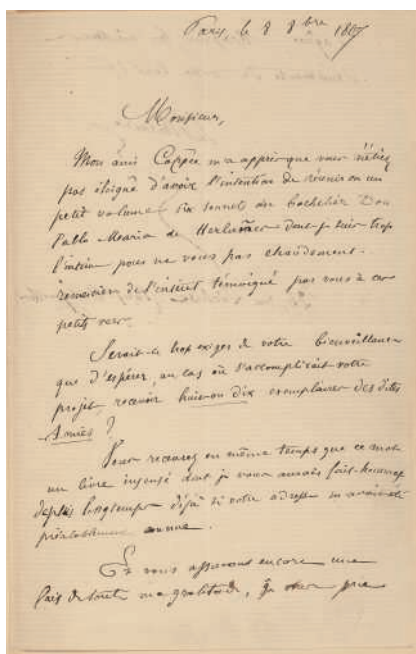 Paris, le 8 8bre 1867
Monsieur,
Mon ami Coppée m'a appris que vous n'étiez
pas éloigné d'avoir l'intention de réunir en un
petit volume six sonnets du bachelier Don
Pablo Maria de Herlañes dont je suis trop
l'intime pour ne vous pas chaudement
remercier de l'intérêt témoigné par vous à ces
petits vers.
Serait-ce trop exiger de votre bienveillance
que d'espérer, au cas où s'accomplirait votre
projet, recevoir huit ou dix exemplaires des dites
Amies ?
Vous recevrez en même temps que ce mot
un livre insensé dont je vous aurais fait hommage
depuis longtemps déjà si votre adresse m'avait été
préalablement connue.
En vous assurant encore une
fois de toute ma gratitude, je vous prie